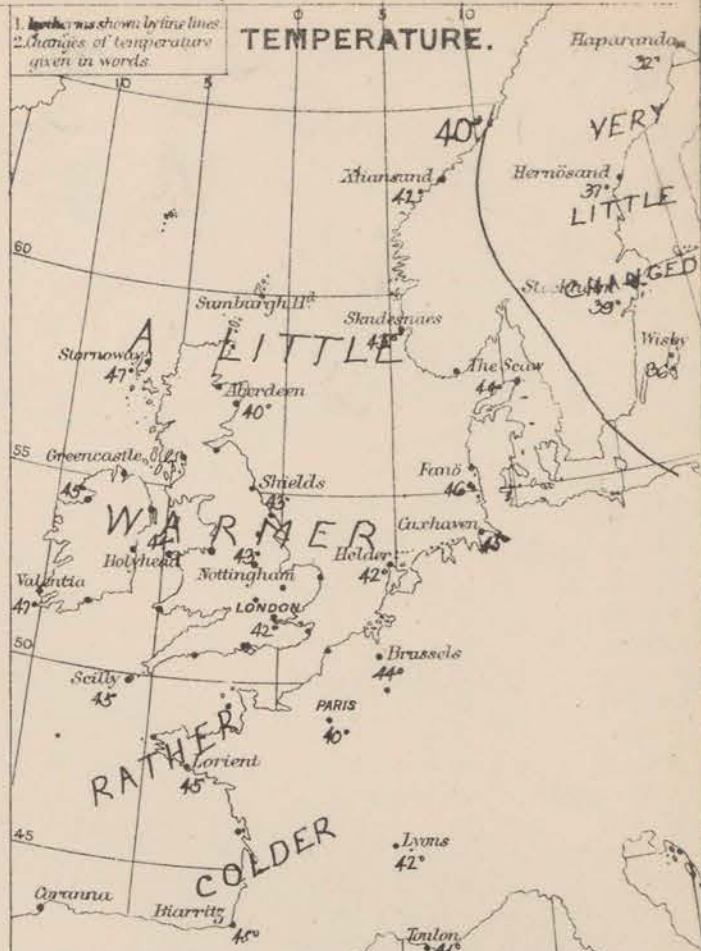 1. Isotherms shown by fine lines.
2. Changes of temperature
given in words
TEMPERATURE.
10
5
0
5
10
Haparanda
32°
40°
VERY
Xhansund
42°
Hernösand
37°
LITTLE
60
CHANGED
39°
Sumburgh Hd.
Skudesnaes
Wisby
36°
A LITTLE
Stornoway
47°
The Scaw
44°
Aberdeen
40°
55
Greencastle
45°
Shields
43°
Fanö
46°
WARMER
Cuxhaven
45°
44°
Holyhead
43°
Nottingham
Helder
42°
Valentia
47°
LONDON
42°
50
Brussels
44°
Scilly
45°
PARIS
40°
RATHER
Lorient
45°
45
COLDER
Lyons
42°
Corunna
Biarritz
45°
Toulon